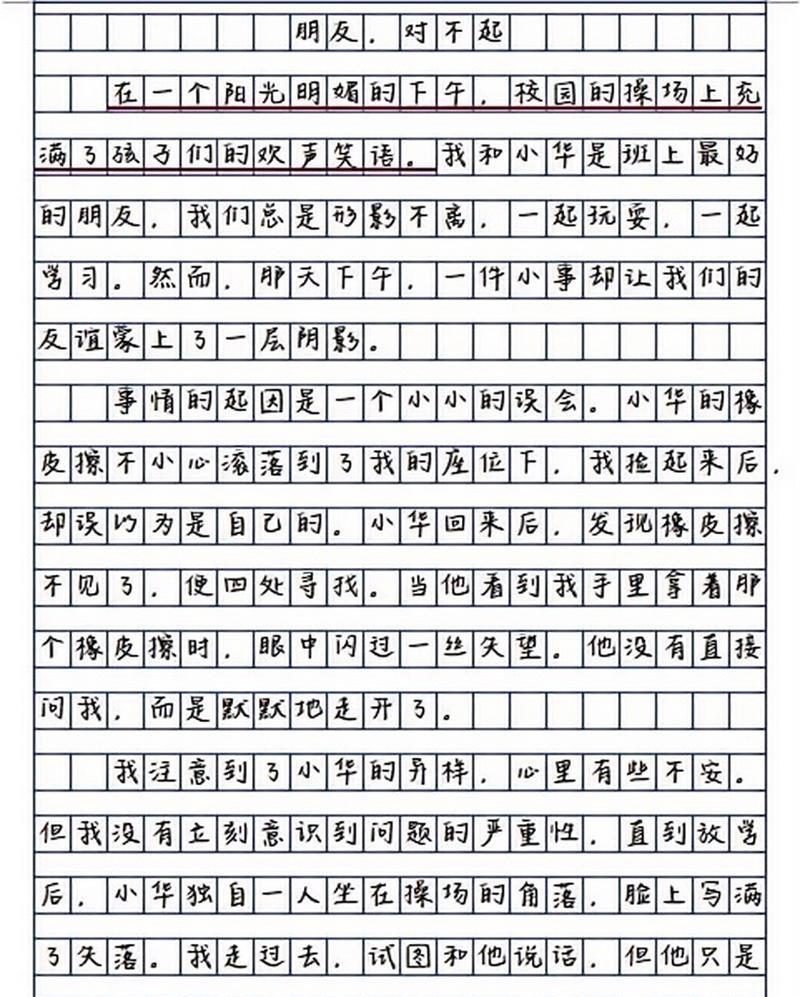 朋友，对不起
在一个阳光明媚的下午，校园的操场上充
满了孩子们的欢声笑语。我和小华是班上最好
的朋友，我们总是形影不离，一起玩耍，一起
学习。然而，那天下午，一件小事却让我们的
友谊蒙上了一层阴影。
事情的起因是一个小小的误会。小华的橡
皮擦不小心滚落到了我的座位下，我捡起来后，
却误以为是自己的。小华回来后，发现橡皮擦
不见了，便四处寻找。当他看到我手里拿着那
个橡皮擦时，眼中闪过一丝失望。他没有直接
问我，而是默默地走开了。
我注意到了小华的异样，心里有些不安。
但我没有立刻意识到问题的严重性，直到放学
后，小华独自一人坐在操场的角落，脸上写满
了失落。我走过去，试图和他说话，但他只是